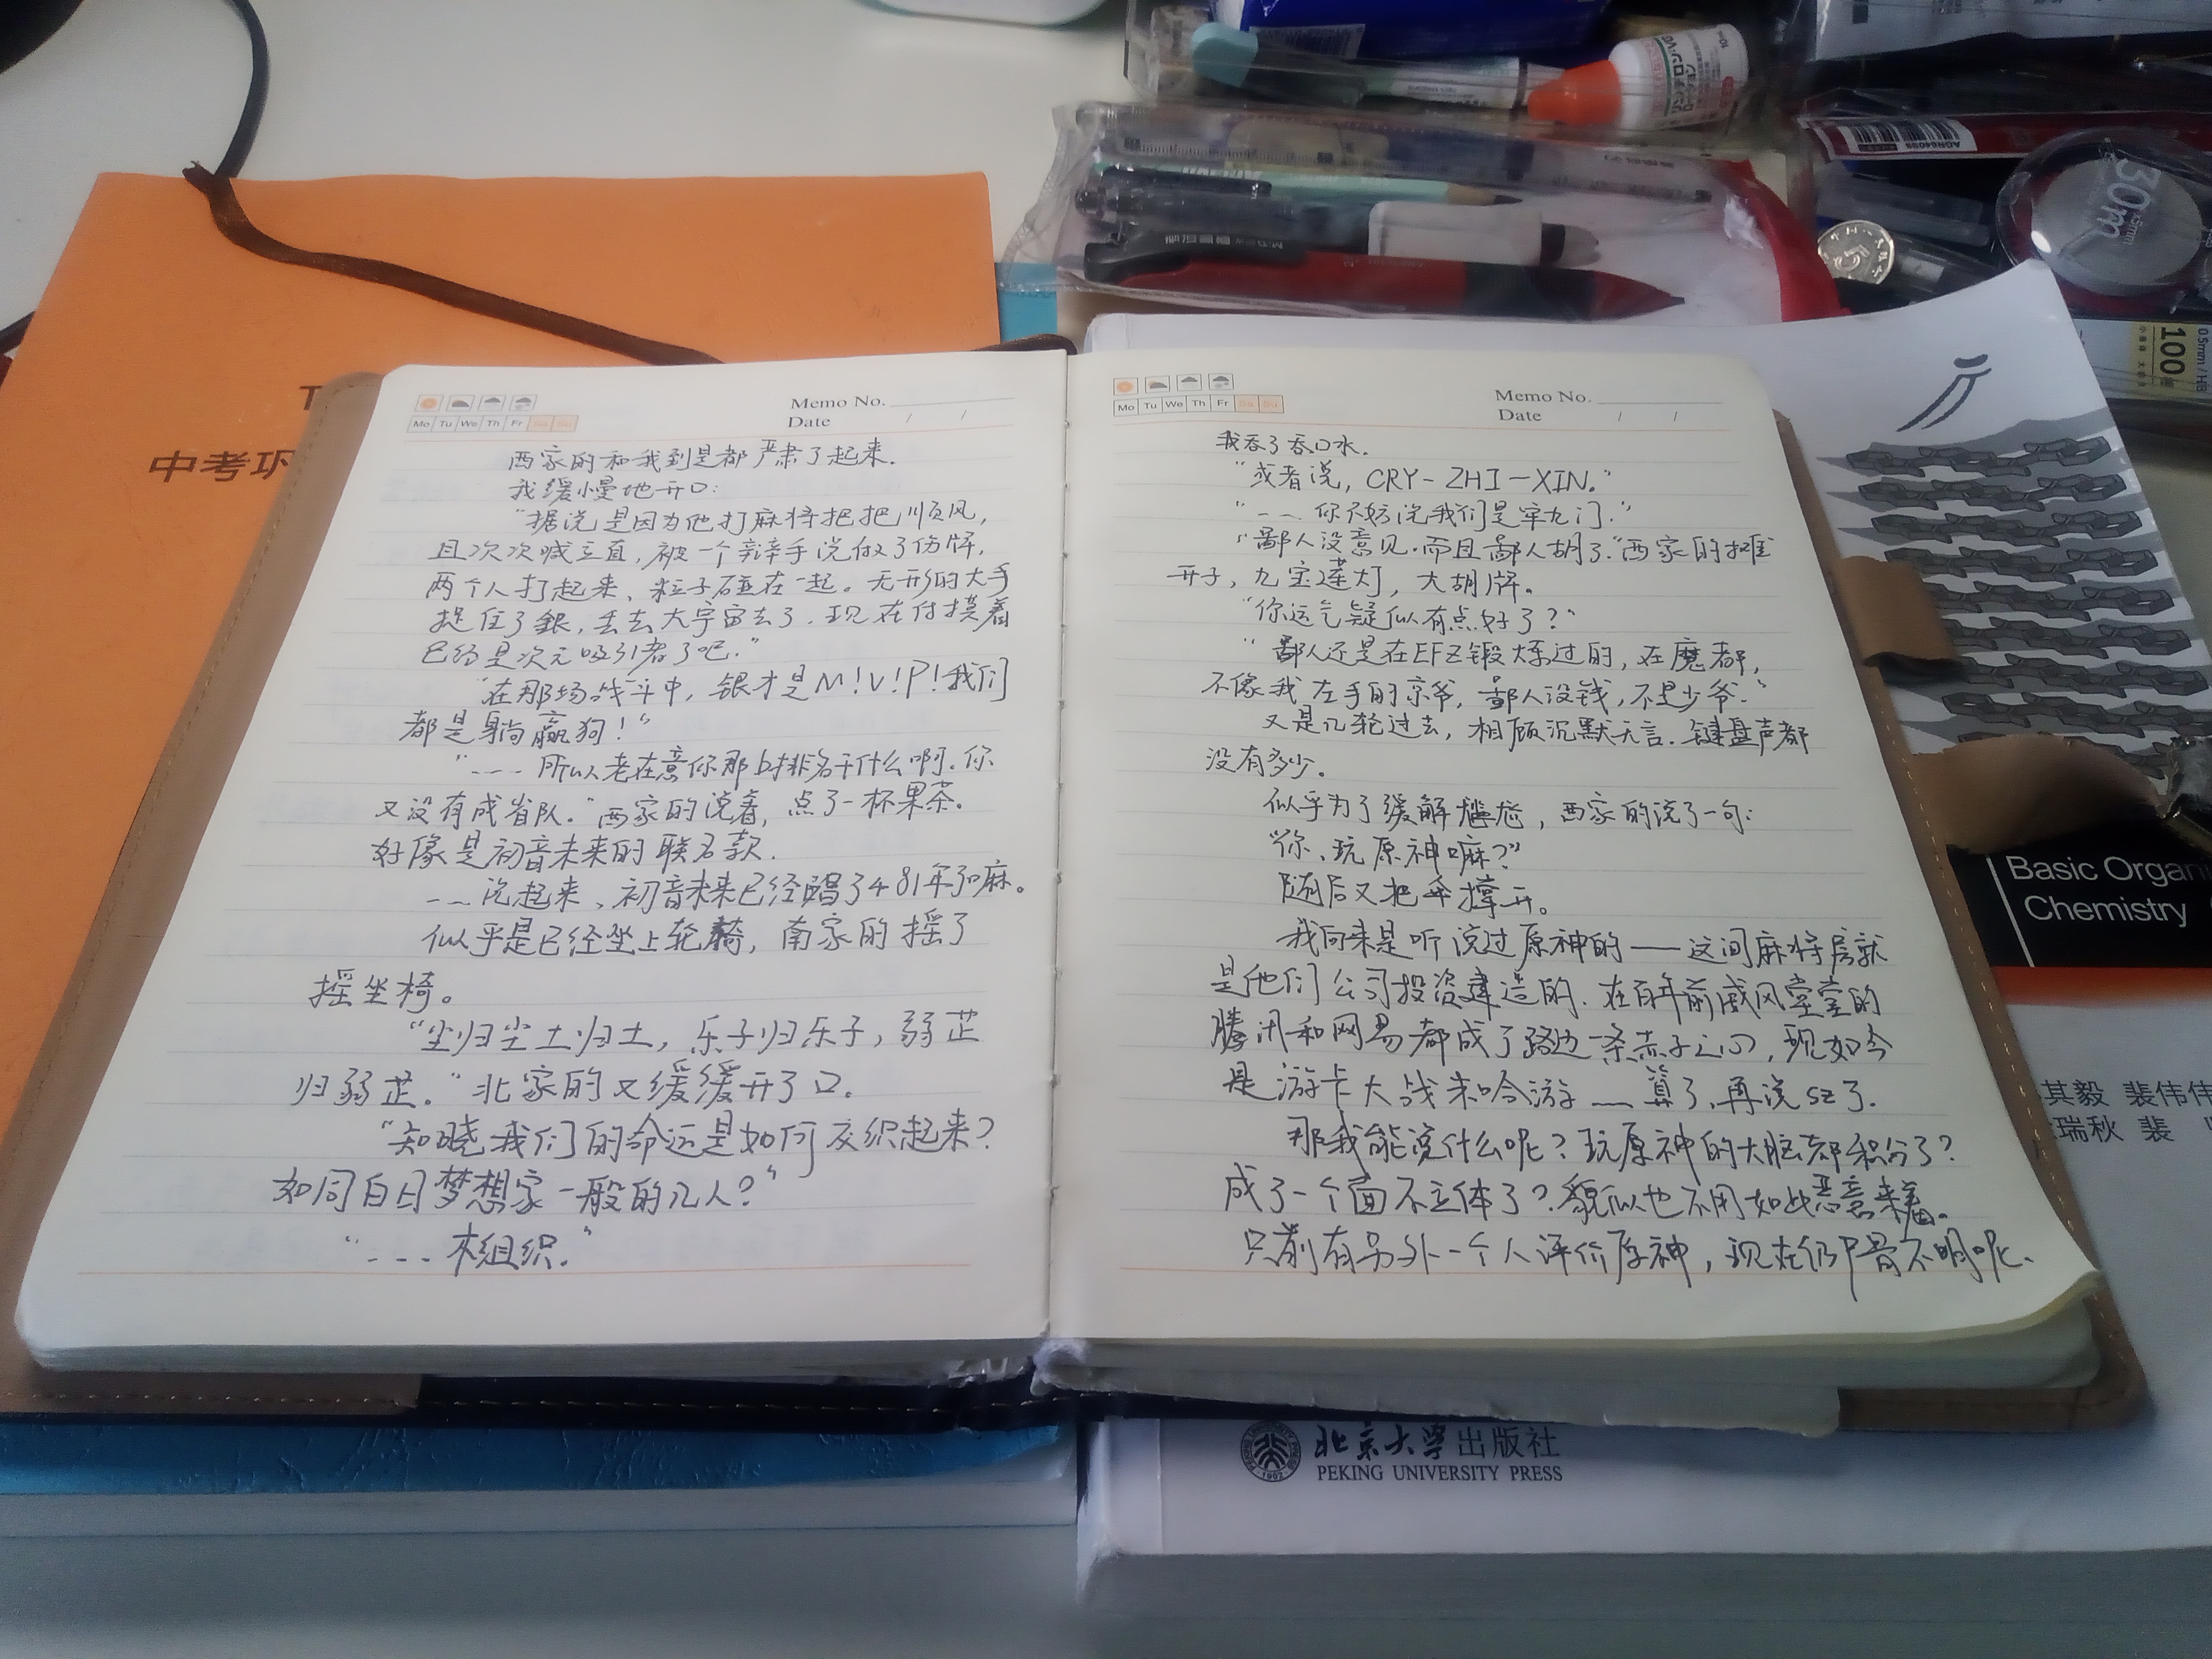 Memo No.
Date / /
Mo Tu We Th Fr Sa Su
西家的和我到是都严肃了起来.
我缓慢地开口:
"据说是因为他打麻将把把顺风,
且次次喊立直,被一个辩手说做了伪牌.
两个人打起来、粒子碰在一起。无形的大手
捉住了銀,丢去大宇宙去了.现在估摸着
已经是次元吸引者了吧."
"在那场战斗中,银才是M!V!P!我们
都是躺赢狗!"
"--- 所以老在意你那b排名干什么啊.你
又没有成省队."西家的说着,点了一杯果茶.
好像是初音未来的联名款.
--- 说起来、初音未来已经唱了481年了嘛。
似乎是已经坐上轮椅,南家的摇了
摇坐椅。
"尘归尘土归土,乐子归乐子,弱芷
归弱芷."北家的又缓缓开了口.
"知晓我们的命运是如何交织起来?
如同白日梦想家一般的几人?"
"--- 本组织."
Memo No.
Date / /
Mo Tu We Th Fr Sa Su
我吞了吞口水.
"或者说, CRY-ZHI-XIN."
"--- 你只好说我们是牢九门."
"鄙人没意见.而且鄙人胡了."西家的推
开子,九宝莲灯,大胡牌。
"你运气疑似有点好了?"
"鄙人还是在EFZ锻炼过的,在魔都,
不像我左手的京爷,鄙人没钱,不是少爷."
又是几轮过去,相顾沉默无言.键盘声都
没有多少.
似乎为了缓解尴尬,西家的说了一句:
"你、玩原神嘛?"
随后又把伞撑开。
我向来是听说过原神的——这间麻将房就
是他们公司投资建造的.在百年前威风堂堂的
腾讯和网易都成了路边一条赤子之心,现如今
是游卡大战米哈游 --- 算了,再说sz了.
那我能说什么呢?玩原神的大脑都积分了?
成了一个面不立体了?貌似也不用如此恶意来着。
只前有另外一个人评价原神,现在仍尸骨不明呢、
中考巩
Basic Organ
Chemistry
其毅 裴伟伟
瑞秋 裴
北京大学出版社
PEKING UNIVERSITY PRESS
1902
30m
100
0.5mm / HB
AGR640S9